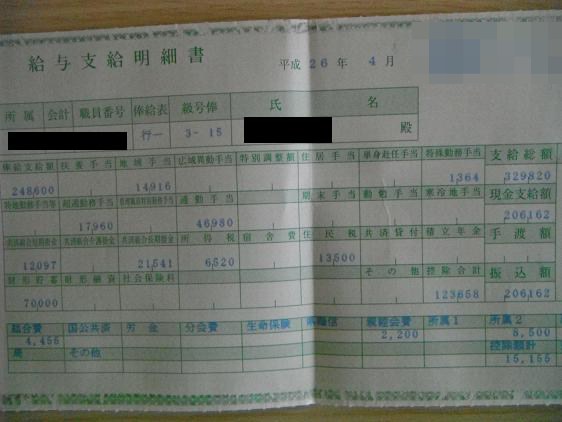 給与支給明細書
平成 26 年 4 月
所属 会計 職員番号 俸給表 級号俸 氏 名
行一 3-15 殿
俸給支給額 扶養手当 地域手当 広域異動手当 特別調整額 住居手当 単身赴任手当 特殊勤務手当 支給総額
248,600 14,916 1,364 329,820
特地勤務手当等 超過勤務手当 管理職員特別勤務手当 通勤手当 期末手当 勤勉手当 寒冷地手当 現金支給額
17,960 46,980 206,162
共済組合短期掛金 共済組合介護掛金 共済組合長期掛金 所得税 宿舎費 住民税 共済貸付 積立年金 手渡額
12,097 21,541 6,520 13,500
財形貯蓄 財形融資 社会保険料 その他 控除合計 振込額
70,000 123,658 206,162
組合費 国公共済 労金 分会費 生命保険 親睦会費 所属1 所属2
4,455 2,200 8,500
その他 控除額計
15,155